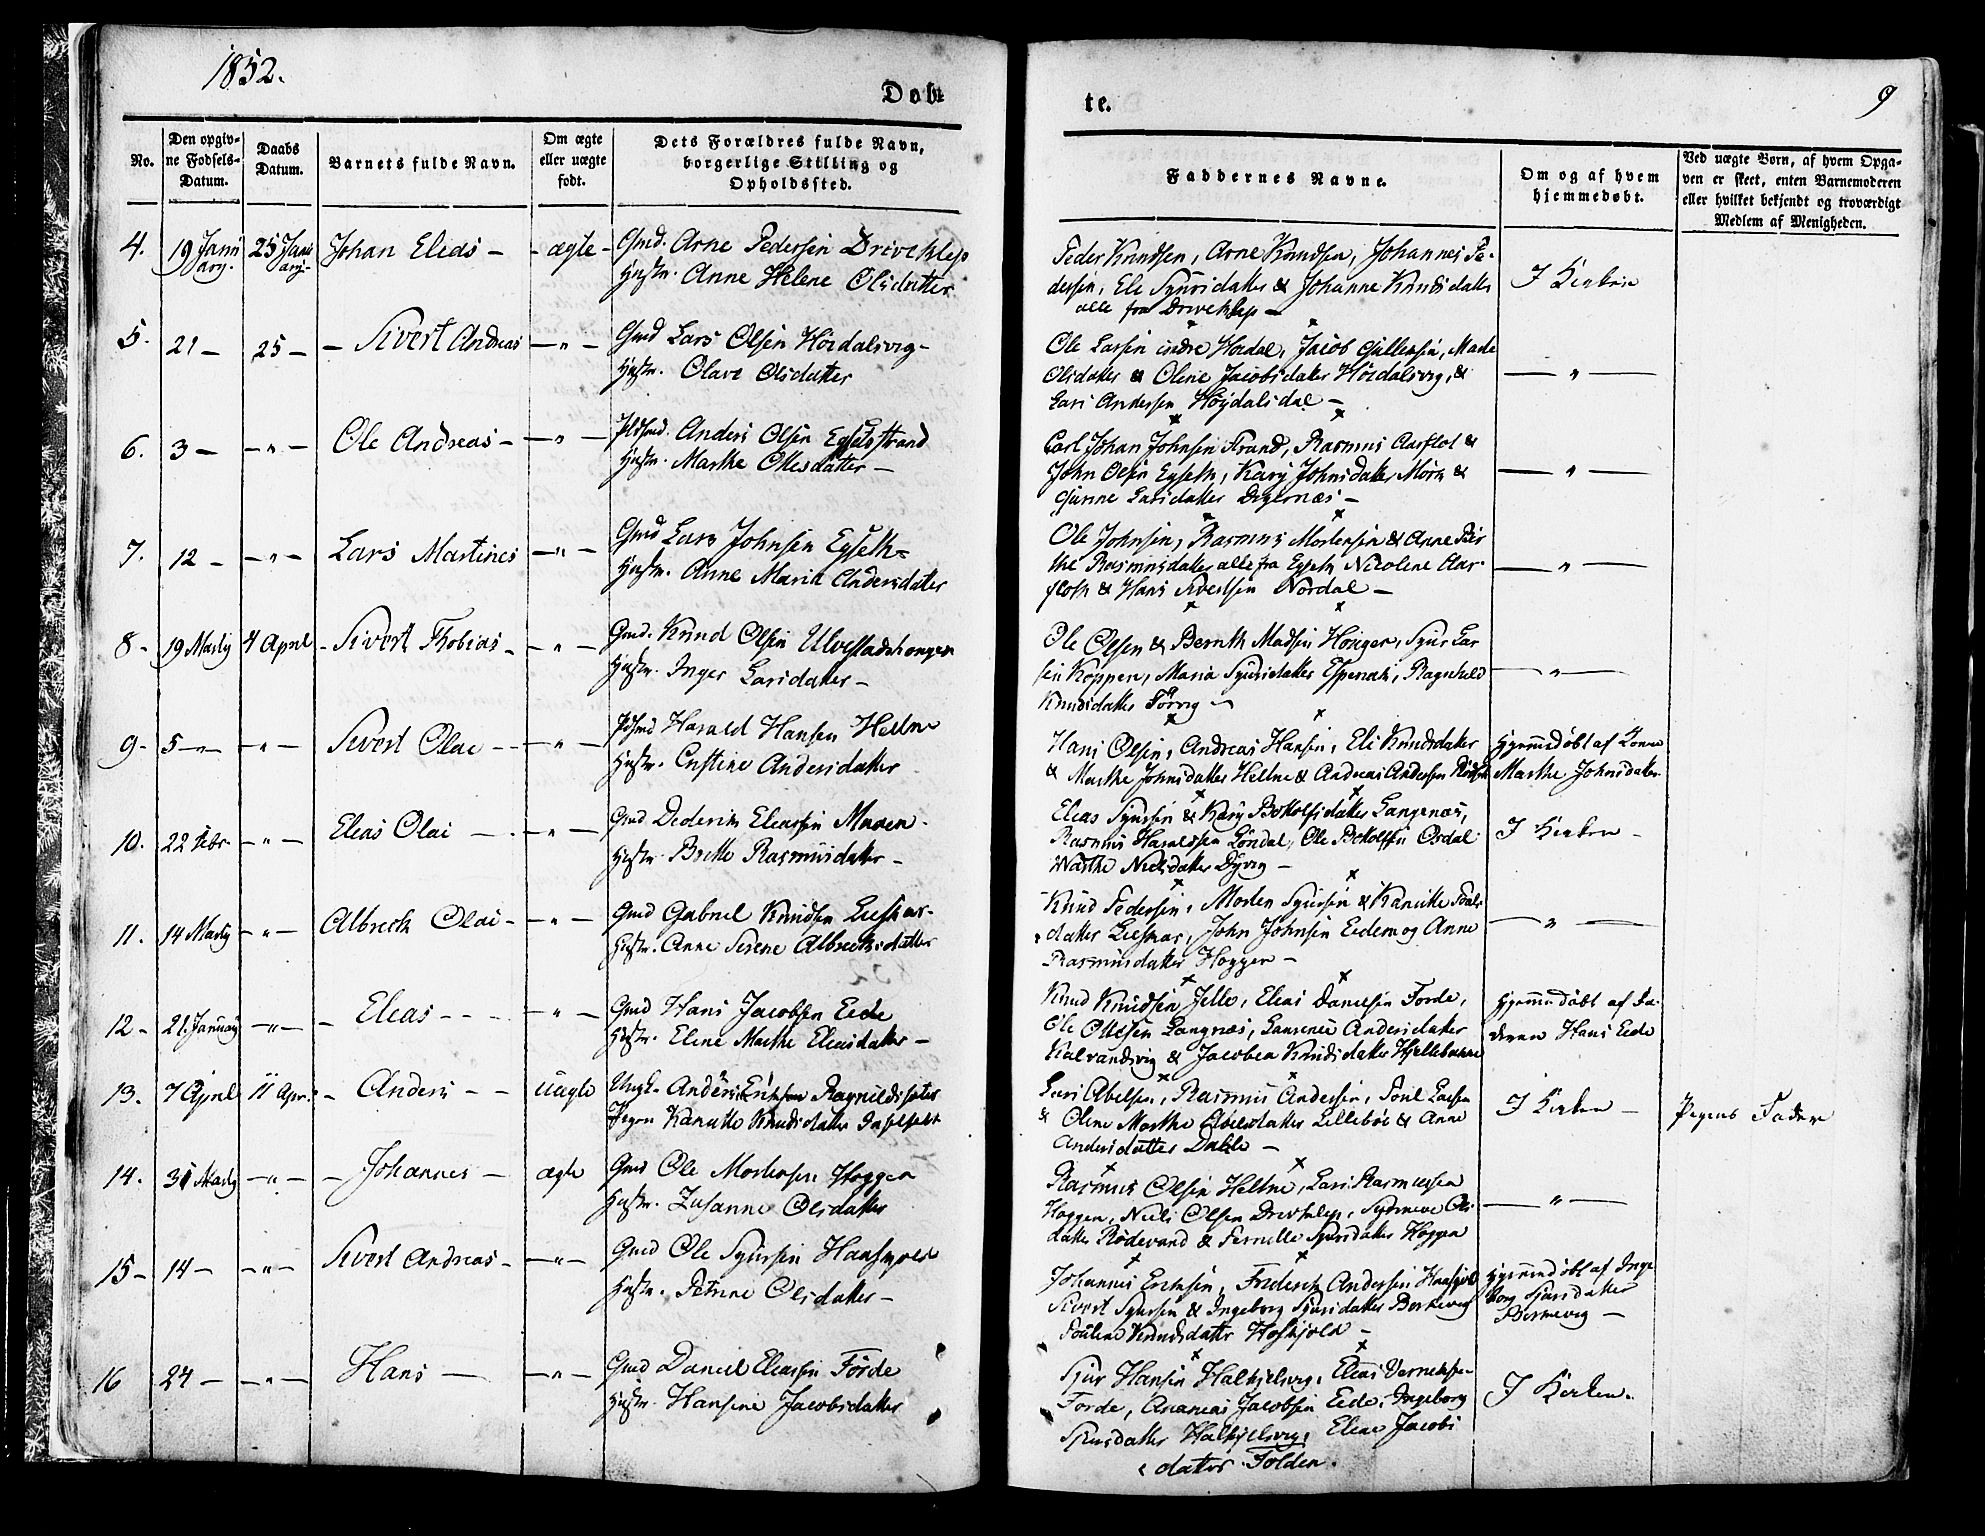 1852.
Døb-
te.
9
No.
Den opgiv-
ne Fødsels-
Datum.
Daabs
Datum.
Barnets fulde Navn.
Om ægte
eller uægte
født.
Dets Forældres fulde Navn,
borgerlige Stilling og
Opholdssted.
Faddernes Navne.
Om og af hvem
hjemmedøbt.
Ved uægte Børn, af hvem Opga-
ven er skeet, enten Barnemoderen
eller hvilket bekjendt og troværdigt
Medlem af Menigheden.
4. 19 Janu ary. 25 Janu ary- Johan Elias - - ægte - Gmd. Arne Pedersen Driveklep
Hustr. Anne Helene Olsdatter
Peder Knudsen, Arne Knudsen, Johannes Pe-
dersen, Ele Sjursdatter & Johanne Knudsdatter
alle fra Driveklep -
I Kirken
5. 21 - 25 - - Sivert Andreas - " - Gmd Lars Olsen Höidalsvig -
Hustr. Olave Olsdatter
Ole Larsen indre Hordal, Jacob Gullensen, Made
Olsdatter & Oline Jacobsdatter Höidalsvig, &
Lars Andersen Höydalsdal -
- " -
6. 3 - - " - Ole Andreas - - " - Pldsmd. Anders Olsen Eysetstrand
Hustr. Marthe Ottesdatter -
Carl Johan Johnsen Strand, Rasmus Aarflot &
John Olsen Eyseth, Kary Johnsdatter Mork &
Gunne Larsdatter Digernæs -
- " -
7. 12 - - " - Lars Martines - " - Gmd Lars Johnsen Eyseth -
Hustr. Anne Maria Andersdatter
Ole Johnsen, Rasmus Mortensen & Anne Ber
the Rasmusdatter alle fra Eyseth Nicoline Aar-
floth & Hans Sivertsen Nordal -
- " -
8 - 19 Marty 4 April - Sivert Thobias - - " - Gmd. Knud Olsen Ulvestadhongen
Hustr. Inger Larsdatter -
Ole Olsen & Bernth Madsen Honger, Sjur Lar
sen Koppen, Maria Sjursdatter Espenak, Ragnhild
Knudsdatter Förvig -
- " -
9 - 5 - " - - " - Sivert Olai - - " - Pldsmd Harald Hansen Hellne
Hustr. Cristine Andersdatter
Hans Olsen, Andreas Hansen, Eli Knudsdatter
& Marthe Johnsdatter Hellne & Andreas Andersen
Hjemmedöbt af Konen
Marthe Johnsdatter
10. 22 Febr - " - Elias Olai - - " - Gmd Dederik Eliassen Maren -
Hustr. Britte Rasmusdatter -
Elias Sjursen & Kary Botolfsdatter Langenæs,
Rasmus Haraldsen Löndal, Ole Botolfsen Osdal
Marthe Nielsdatter Dyvig -
I Kirken -
11. 14 Marty - " - Albrecth Olai - - " - Gmd Gabriel Knudsen Lieskar -
Hustr. Anne Serene Albrecthsdatter
Knud Pedersen, Morten Sjursen & Kanutte Pouls
datter Lieskar, John Johnsen Eidem og Anne
Rasmusdatter Hoggen -
- " -
12 - 21. January - " - - Elias - - - - " - Gmd Hans Jacobsen Eide
Hustr. Elene Marthe Eliasdatter -
Knud Knudsen Jelle, Elias Danielsen Förde,
Ole Ottesen Langnæs, Laurense Andersdatter
Kalvandsvig & Jacobea Knudsdatter Hjellebakke
Hjemmedöbt af Fa-
deren Hans Eide
13. 7 April 11 Apr. - Anders - - uægte Ungk. Anders Eriksen Ragnildssæter
Pigen Kanutte Knudsdatter
Lars Abelsen, Rasmus Andersen, Poul Larsen
& Oline Marthe Abelsdatter Lillebøe & Anne
Andersdatter Dahle -
I Kirken - Pigens Fader
14. 31 Marty - " - - Johannes - ægte Gmd Ole Mortensen Hoggen
Hustr. Susanne Olsdatter
Rasmus Olsen Hellne, Lars Rasmussen
Hoggen, Niels Olsen Driveklep, Synneve Ols
datter Rödevand & Pernille Sjursdatter Hoggen
- " -
15 - 14 - - " - Sivert Andreas - - " - Gmd Ole Sjursen Haaskjold
Hustr. Petrine Olsdatter -
Johannes Ericksen, Frederick Andersen Haaskjold
Sivert Sjursen & Ingeborg Sjursdatter Berkevig
Pouline Knudsdatter Hoskjold -
Hjemmedöbt af Inge
borg Sjursdatter
Berkevig -
16 24 - - " - Hans - - " - Gmd Daniel Eliassen Förde
Hustr. Hansine Jacobsdatter
Sjur Hansen Halkjelsvig, Elias
Förde, Ananias Jacobsen Eide, Ingeborg
Sjursdatter Halkjelsvig, Elene Jacobs
datter Folden.
I Kirken.